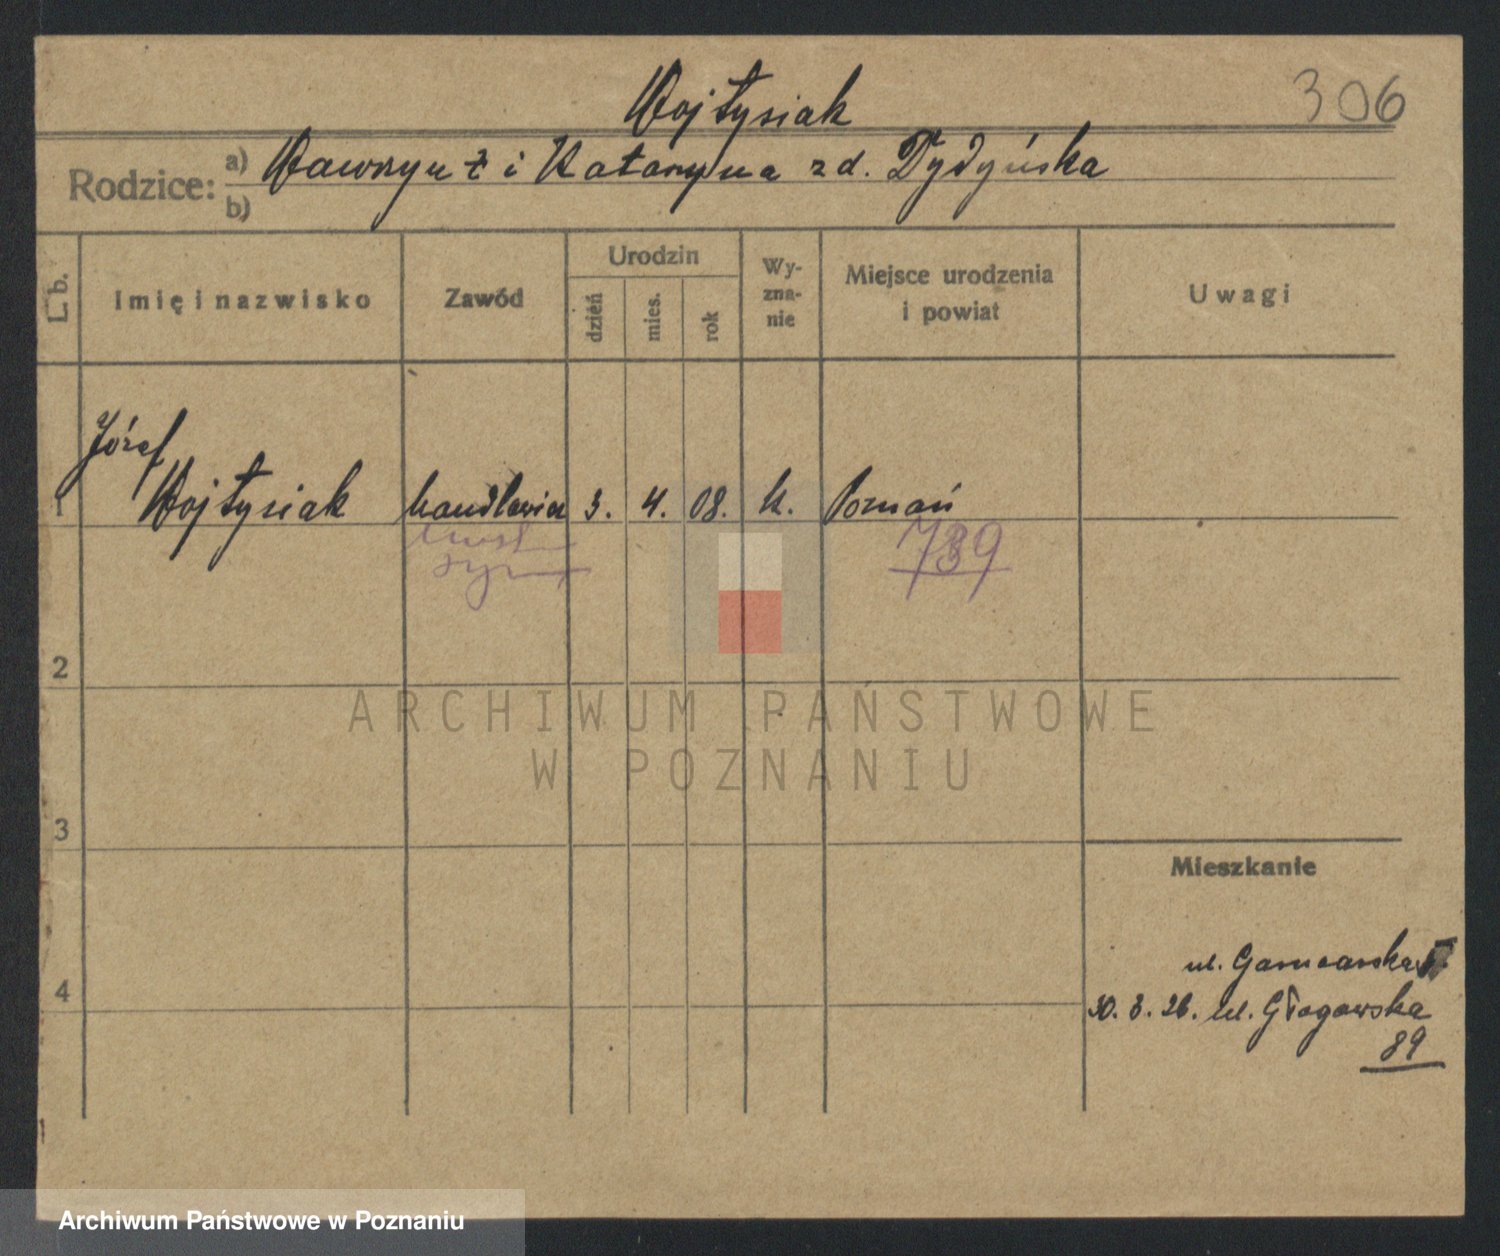 Wojtysiak
306
Rodzice: a) Wawrzyn i Katarzyna z d. Dydyńska
b)
L. b.
Imię i nazwisko
Zawód
Urodzin
dzień
mies.
rok
Wyzna-
nie
Miejsce urodzenia
i powiat
Uwagi
Józef
1 Wojtysiak handlowiec 3. 4. 08. k. Poznań
789
2
3
4
Mieszkanie
ul. Garncarska
30. 3. 26. ul. Głogowska
89
ARCHIWUM PAŃSTWOWE
W POZNANIU
Archiwum Państwowe w Poznaniu